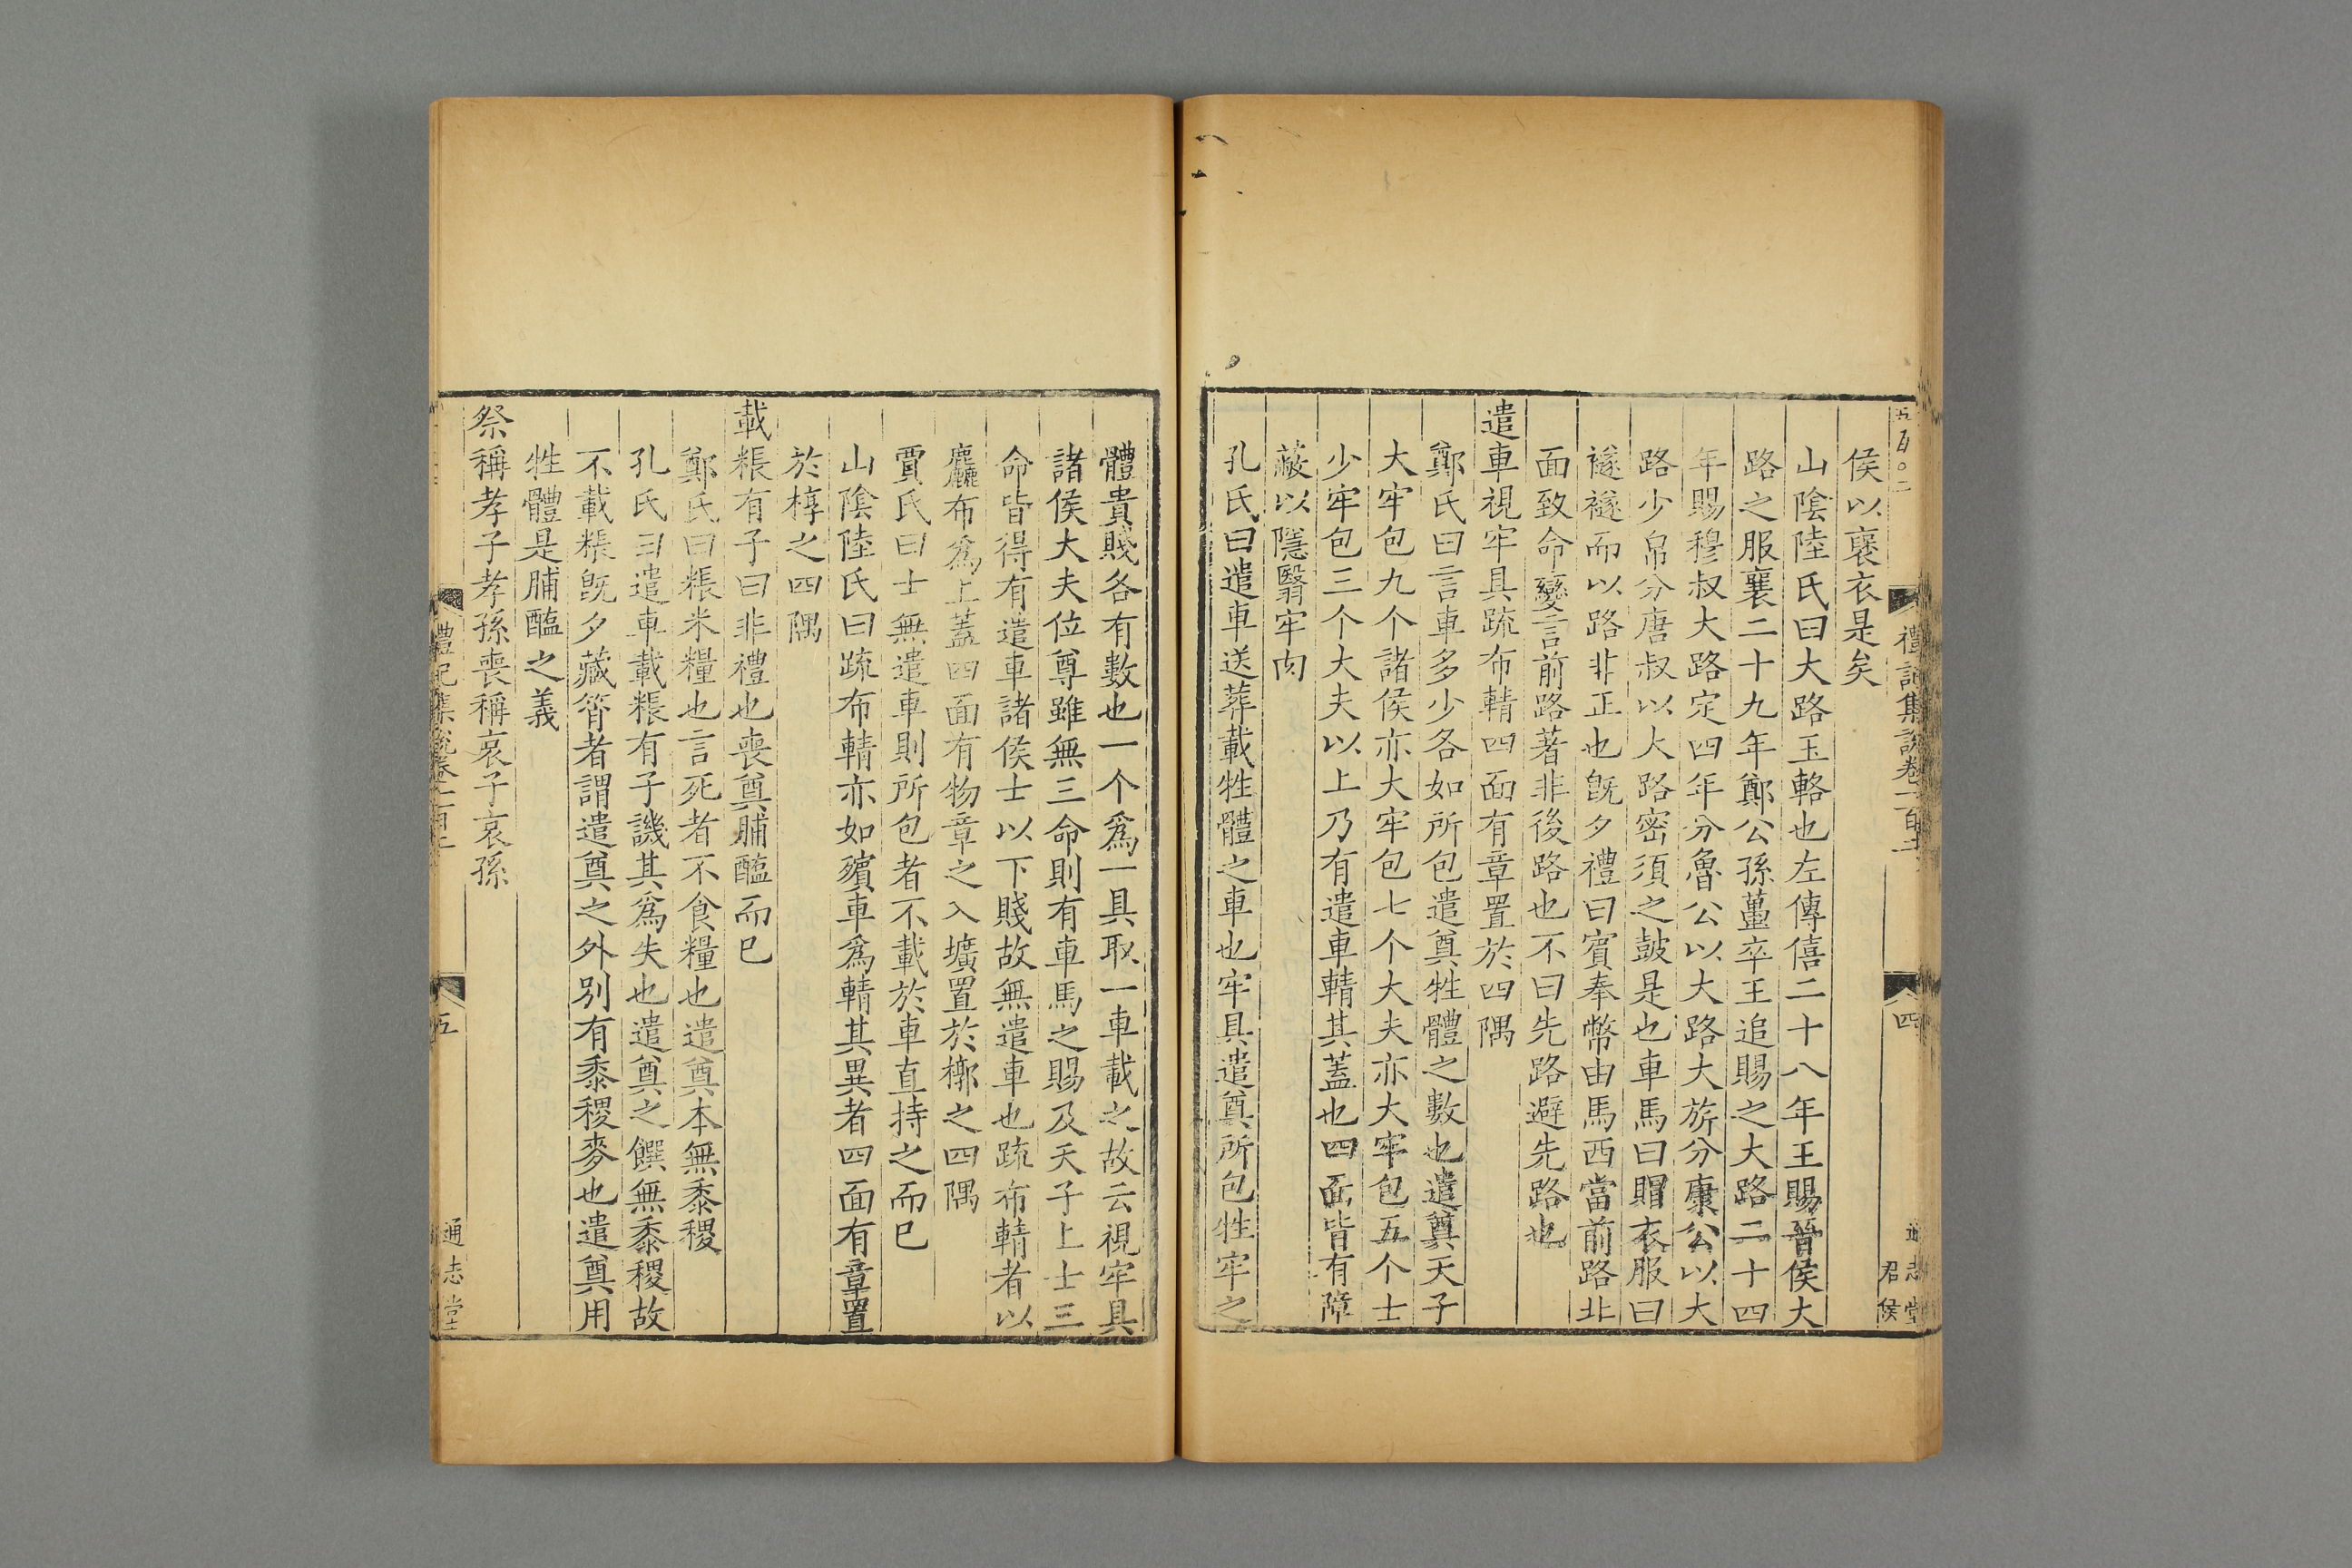 侯以襃衣是矣
山陰陸氏曰大路玉輅也左傳僖二十八年王賜晉侯大
路之服襄二十九年鄭公孫蠆卒王追賜之大路二十四
年賜穆叔大路定四年分魯公以大路大旂分康公以大
路少帛分唐叔以大路密須之鼓是也車馬曰賵衣服曰
襚襚而以路非正也旣夕禮曰賓奉幣由馬西當前路北
面致命變言前路著非後路也不曰先路避先路也
遣車視牢具疏布輤四面有章置於四隅
鄭氏曰言車多少各如所包遣奠牲體之數也遣奠天子
大牢包九个諸侯亦大牢包七个大夫亦大牢包五个士
少牢包三个大夫以上乃有遣車輤其蓋也四面皆有障
蔽以隱翳牢肉
孔氏曰遣車送葬載牲體之車也牢具遣奠所包牲牢之
禮記集說卷一百二
四
通志堂
君侯
體貴賤各有數也一个爲一具取一車載之故云視牢具
諸侯大夫位尊雖無三命則有車馬之賜及天子上士三
命皆得有遣車諸侯士以下賤故無遣車也疏布輤者以
麤布爲上蓋四面有物章之入壙置於槨之四隅
賈氏曰士無遣車則所包者不載於車直持之而已
山陰陸氏曰疏布輤亦如殯車爲輤其異者四面有章置
於椁之四隅
載粻有子曰非禮也喪奠脯醢而已
鄭氏曰粻米糧也言死者不食糧也遣奠本無黍稷
孔氏曰遣車載粻有子譏其爲失也遣奠之饌無黍稷故
不載粻旣夕藏筲者謂遣奠之外別有黍稷麥也遣奠用
牲體是脯醢之義
祭稱孝子孝孫喪稱哀子哀孫
禮記集說卷一百二
五
通志堂